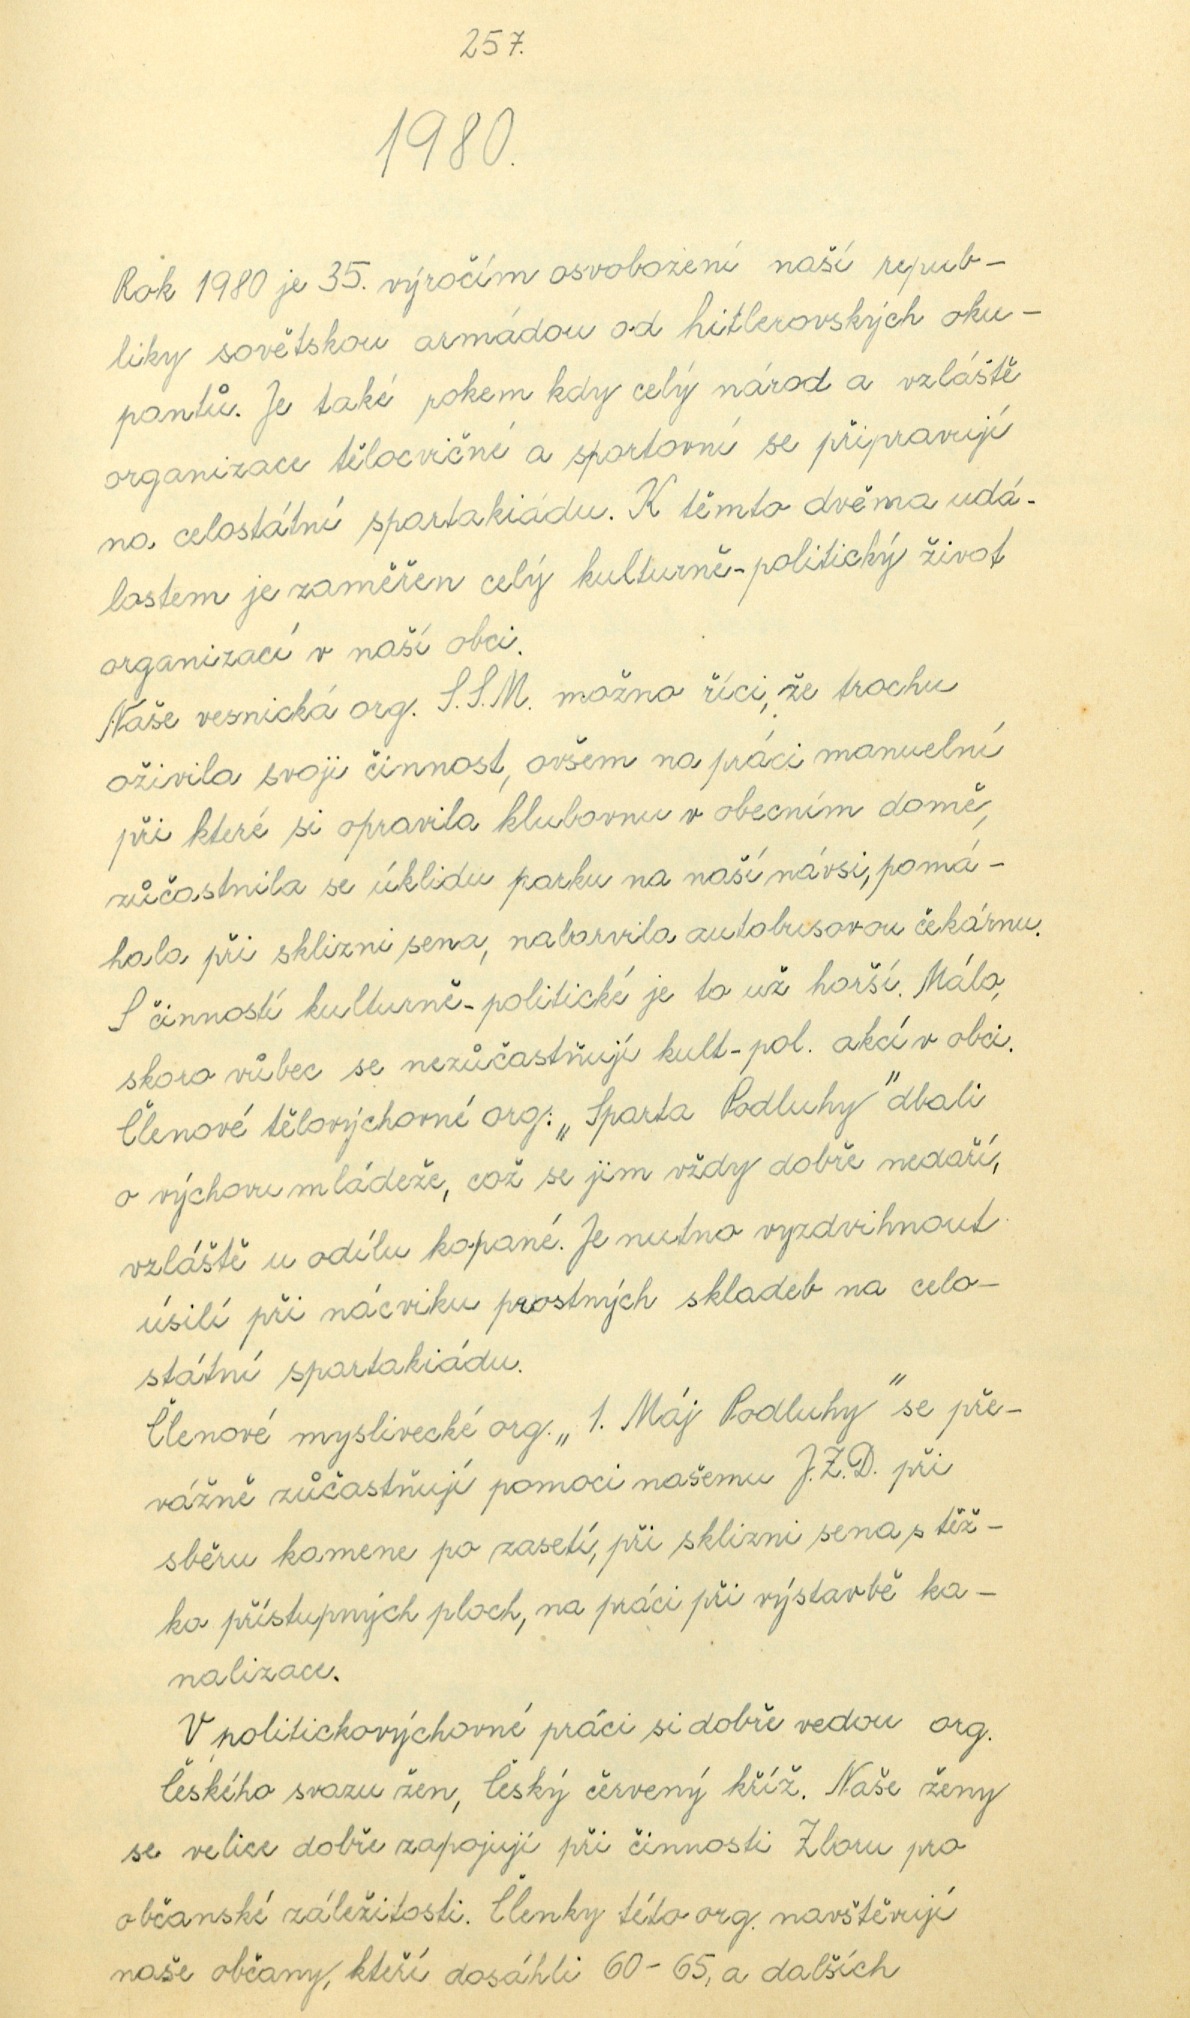 257.
1980.
Rok 1980 je 35. výročím osvobození naší repub-
liky sovětskou armádou od hitlerovských oku-
pantů. Je také rokem kdy celý národ a vzláště
organizace tělocvičné a sportovní se připravují
na celostátní spartakiádu. K těmto dvěma udá-
lostem je zaměřen celý kulturně-politický život
organizací v naší obci.
Naše vesnická org. S.S.M. možno říci, že trochu
oživila svoji činnost, ovšem na práci manuelní
při které si opravila klubovnu v obecním domě,
zůčastnila se úklidu parku na naší návsi, pomá-
hala při sklizni sena, nabarvila autobusovou čekárnu.
S činností kulturně-politické je to už horší. Málo,
skoro vůbec se nezůčastňují kult-pol. akcí v obci.
Členové tělovýchovné org: „Sparta Podluhy" dbali
o výchovu mládeže, což se jim vždy dobře nedaří,
vzláště u odílu kopané. Je nutno vyzdvihnout
úsilí při nácviku prostných skladeb na celo-
státní spartakiádu.
Členové myslivecké org. „1. Máj Podluhy" se pře-
vážně zůčastňují pomoci našemu J.Z.D. při
sběru kamene po zasetí, při sklizni sena s těž-
ko přístupných ploch, na práci při výstavbě ka-
nalizace.
V politickovýchovné práci si dobře vedou org.
Českého svazu žen, Český červený kříž. Naše ženy
se velice dobře zapojují při činnosti Zboru pro
občanské záležitosti. Členky této org. navštěvují
naše občany, kteří dosáhli 60-65, a dalších